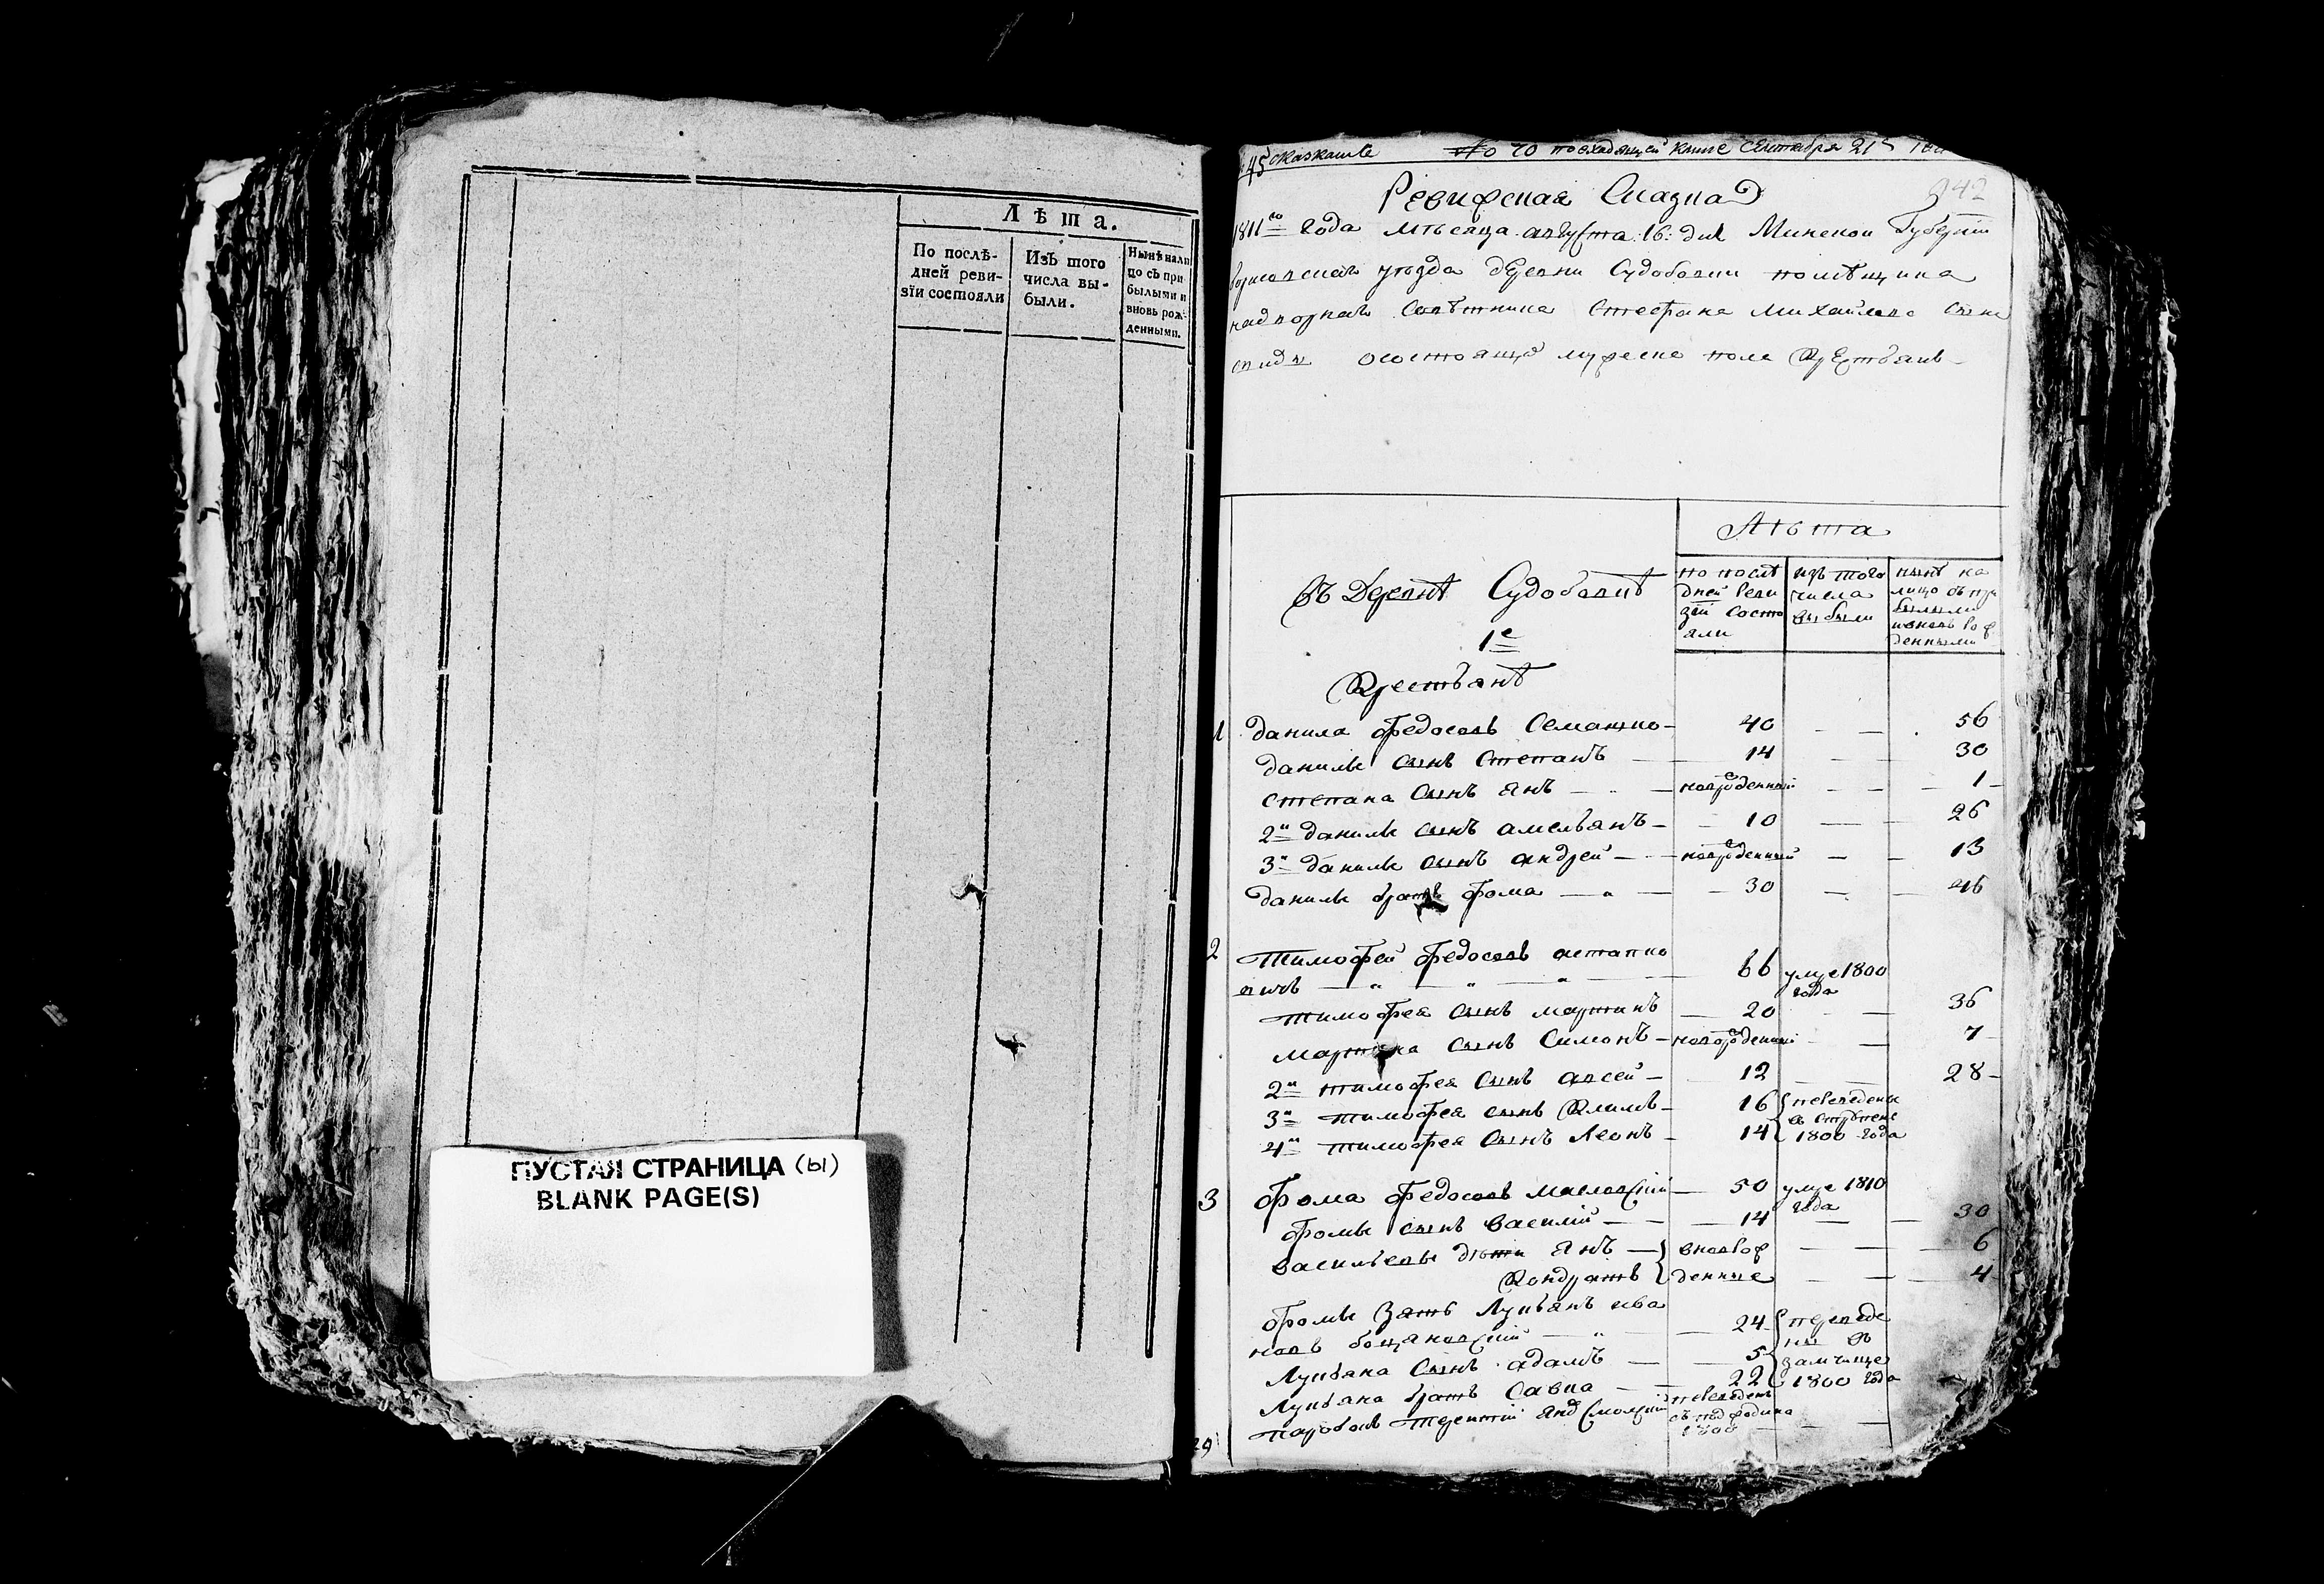 Лѣта.
По послѣ-
дней реви-
зїи состояли
Изъ того
числа вы-
были.
Нынѣ нали
цо съ при
былыми и
вновь рож-
денными.
ПУСТАЯ СТРАНИЦА (ы)
BLANK PAGE(S)
45 No 70 повходящей книге Сентября 21
942
Ревизская Сказка
1811го года мѣсяца августа 16: дня Минской Губернїи
уѣзда деревни Судобовки помѣщика
надворнаго Совѣтника Стефана Михайлова сына
о состоящихъ мужеска пола Крестьянъ
Лѣта
Въ Деревнѣ Судобовкѣ
1е
Крестьянѣ
по послѣ
дней реви
зїи состо
яли
изъ того
числа
выбыли
нынѣ на
лицо съ при
былыми
и вновь рож
денными
1 Данила Федосовъ Семашко 40 56
Данилы сынъ Степанъ 14 30
Степана сынъ Янъ новорожденный 1
2й Данилы сынъ Амельянъ 10 26
3й Данилы сынъ Андрей новорожденный 13
Данилы братъ Фома 30 46
2 Тимофей Федосовъ Астапко
вичъ 66 умре 1800
года
Тимофея сынъ Мартинъ 20 36
Мартина сынъ Симонъ новорожденный 7
2й Тимофея сынъ Авсей 12 28
3й Тимофея сынъ Климъ 16 переведены
4й Тимофея сынъ Леонъ 14 1800 года
3 Фома Федосовъ 50 умре 1810
года
Фомы сынъ Василїй 14 30
Васильевы дѣти Янъ вновь рож 6
Кондратъ денные 4
Фомы зять Лукьянъ Ива
новъ 24 переведе
ны въ
Лукьяна сынъ Адамъ 5 замчище
Лукьяна братъ Савка 22 1800 года
переведенъ
1808